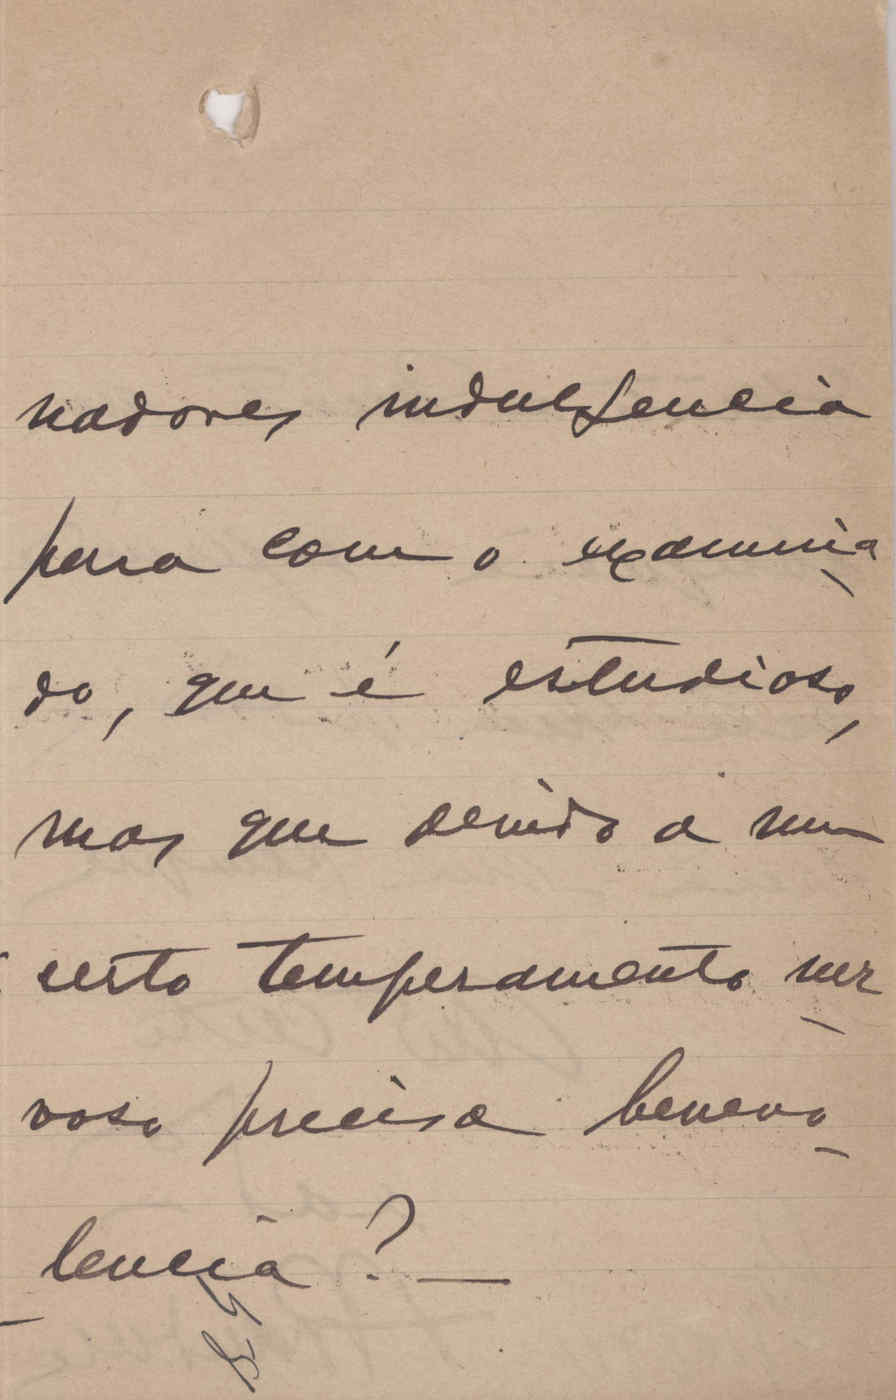 nadores indulgencia
para com o examina
do, que é estudioso,
mas que devido a um
certo temperamento ner
voso precisa benevo
lencia? —